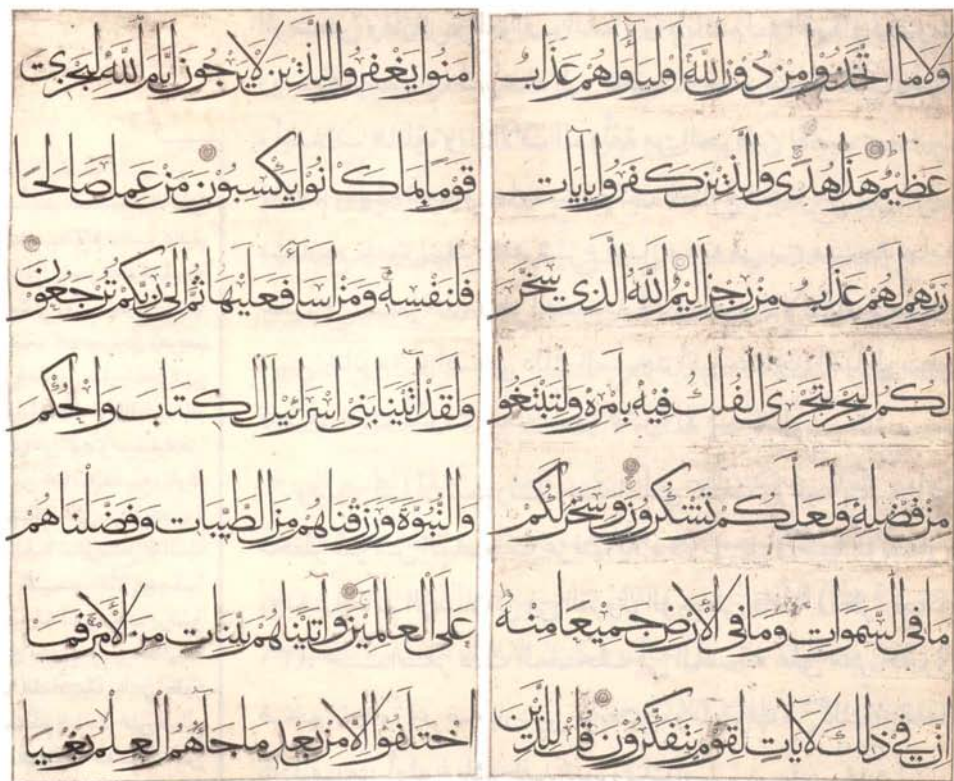 ولا ما اتخذوا من دون الله اوليا ولهم عذاب
عظيم هذا هدى والذين كفروا بايات
ربهم لهم عذاب من رجز اليم الله الذي سخر
لكم البحر لتجري الفلك فيه بامره ولتبتغوا
من فضله ولعلكم تشكرون وسخر لكم
ما في السموات وما في الأرض جميعا منه
ان في ذلك لايات لقوم يتفكرون قل للذين
امنوا يغفروا للذين لا يرجون ايام الله ليجزي
قوما بما كانوا يكسبون من عمل صالحا
فلنفسه ومن اسا فعليها ثم الى ربكم ترجعون
ولقد اتينا بني اسرائيل الكتاب والحكم
والنبوة ورزقناهم من الطيبات وفضلناهم
على العالمين واتيناهم بينات من الأمر فما
اختلفوا الا من بعد ما جاهم العلم بغيا